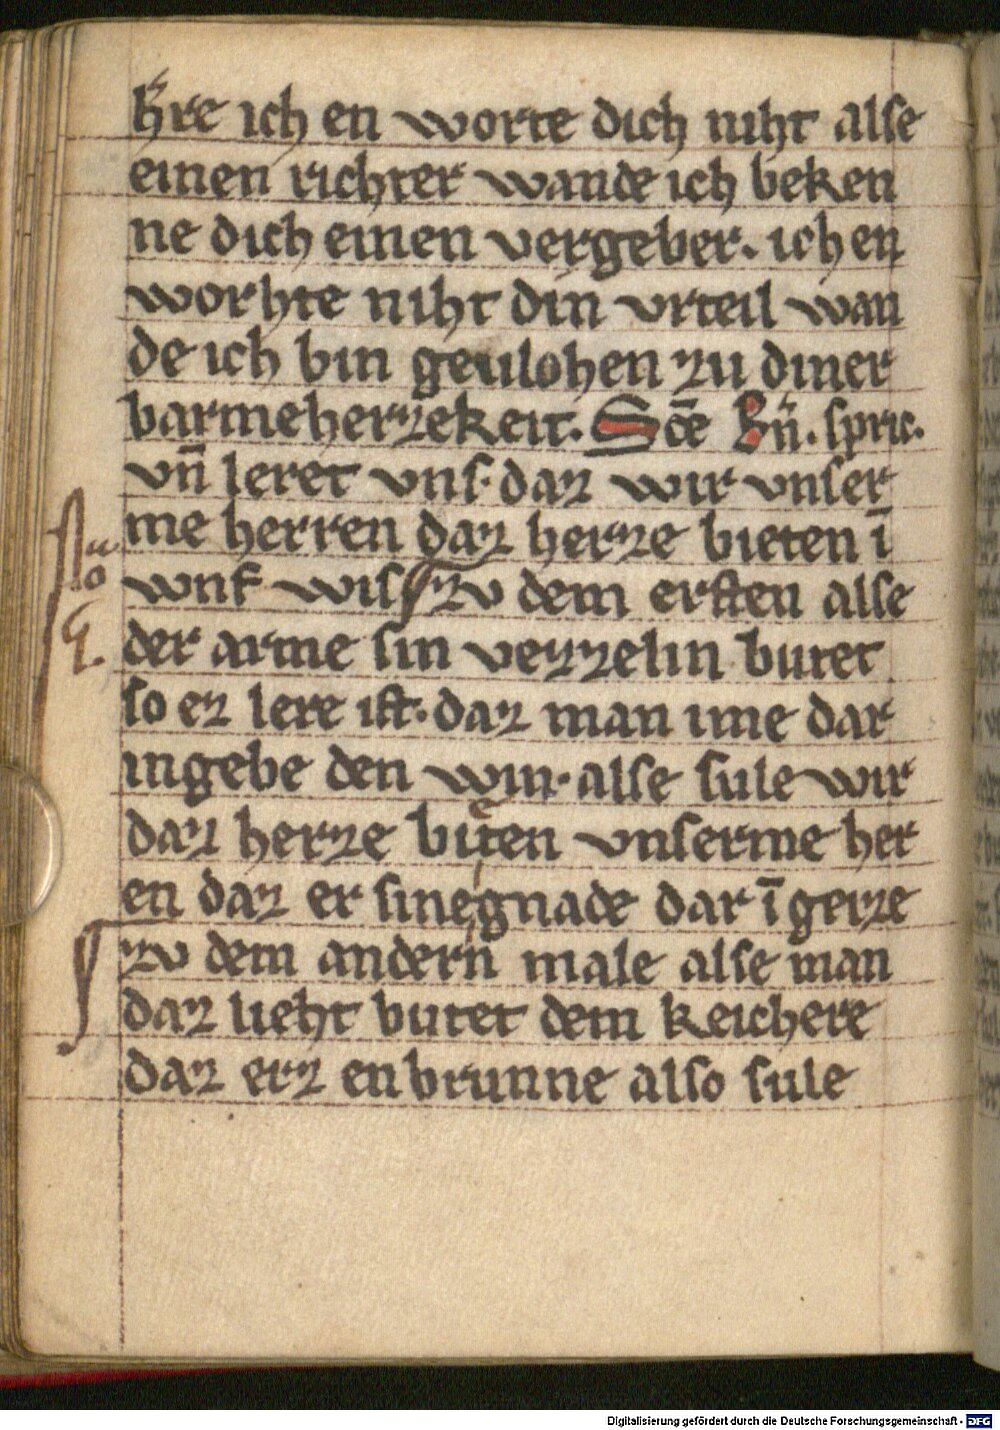 h̓re ich en worte dich niht alse
einen richter wande ich beken
ne dich einen vergeber. ich en
worhte niht din vrteil wan
de ich bin geulohen zu diner
barmeherzekeit. Sc̄e B̓n̄. spric.
vn̄ leret vns. daz wir vnser
me herren daz herze bieten ī
wnf wis zv dem ersten alse
der arme sin vezzelin butet
so ez lere ist. daz man ime dar
ingebe den win. alse sule wir
daz herze biten vnserme her
en daz er sine gnade dar ī gerze
zv dem andern̄ male alse man
daz lieht butet dem keichere
daz erz enbrunne also sule
Digitalisierung gefördert durch die Deutsche Forschungsgemeinschaft - DFG